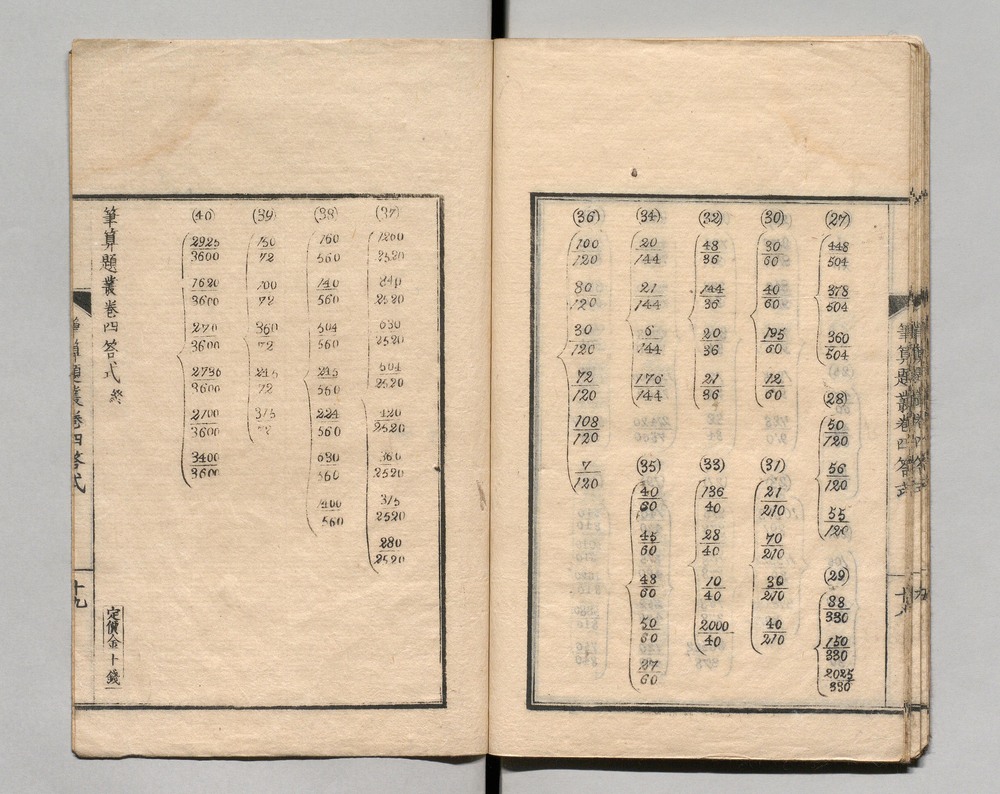 (27)
448/504
378/504
360/504
(28)
50/120
56/120
55/120
(29)
38/330
150/330
2025/330
(30)
30/60
40/60
195/60
12/60
(31)
21/210
70/210
30/210
40/210
(32)
48/36
144/36
20/36
21/36
(33)
136/40
28/40
10/40
2000/40
(34)
20/144
21/144
6/144
176/144
(35)
40/60
45/60
48/60
50/60
37/60
(36)
100/120
80/120
30/120
72/120
108/120
7/120
筆算題叢卷四答式
(37)
1260/2520
840/2520
630/2520
504/2520
420/2520
360/2520
315/2520
280/2520
(38)
160/560
140/560
504/560
245/560
224/560
630/560
400/560
(39)
72
72
360/72
72
(40)
2925/3600
1620/3600
270/3600
3600
2700/3600
3400/3600
筆算題叢卷四答式 終
定價金十錢
筆算題叢卷四答式
十九